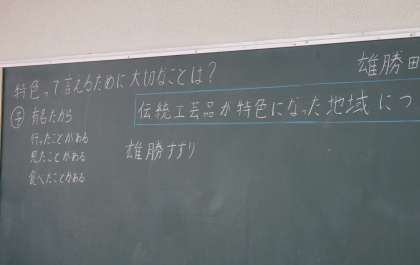 特色って言えるために大切なことは?
雄勝
予 有名だから
伝統工芸品が特色になった地域につ
行ったことがある
見たことがある
食べたことがある
雄勝すずり